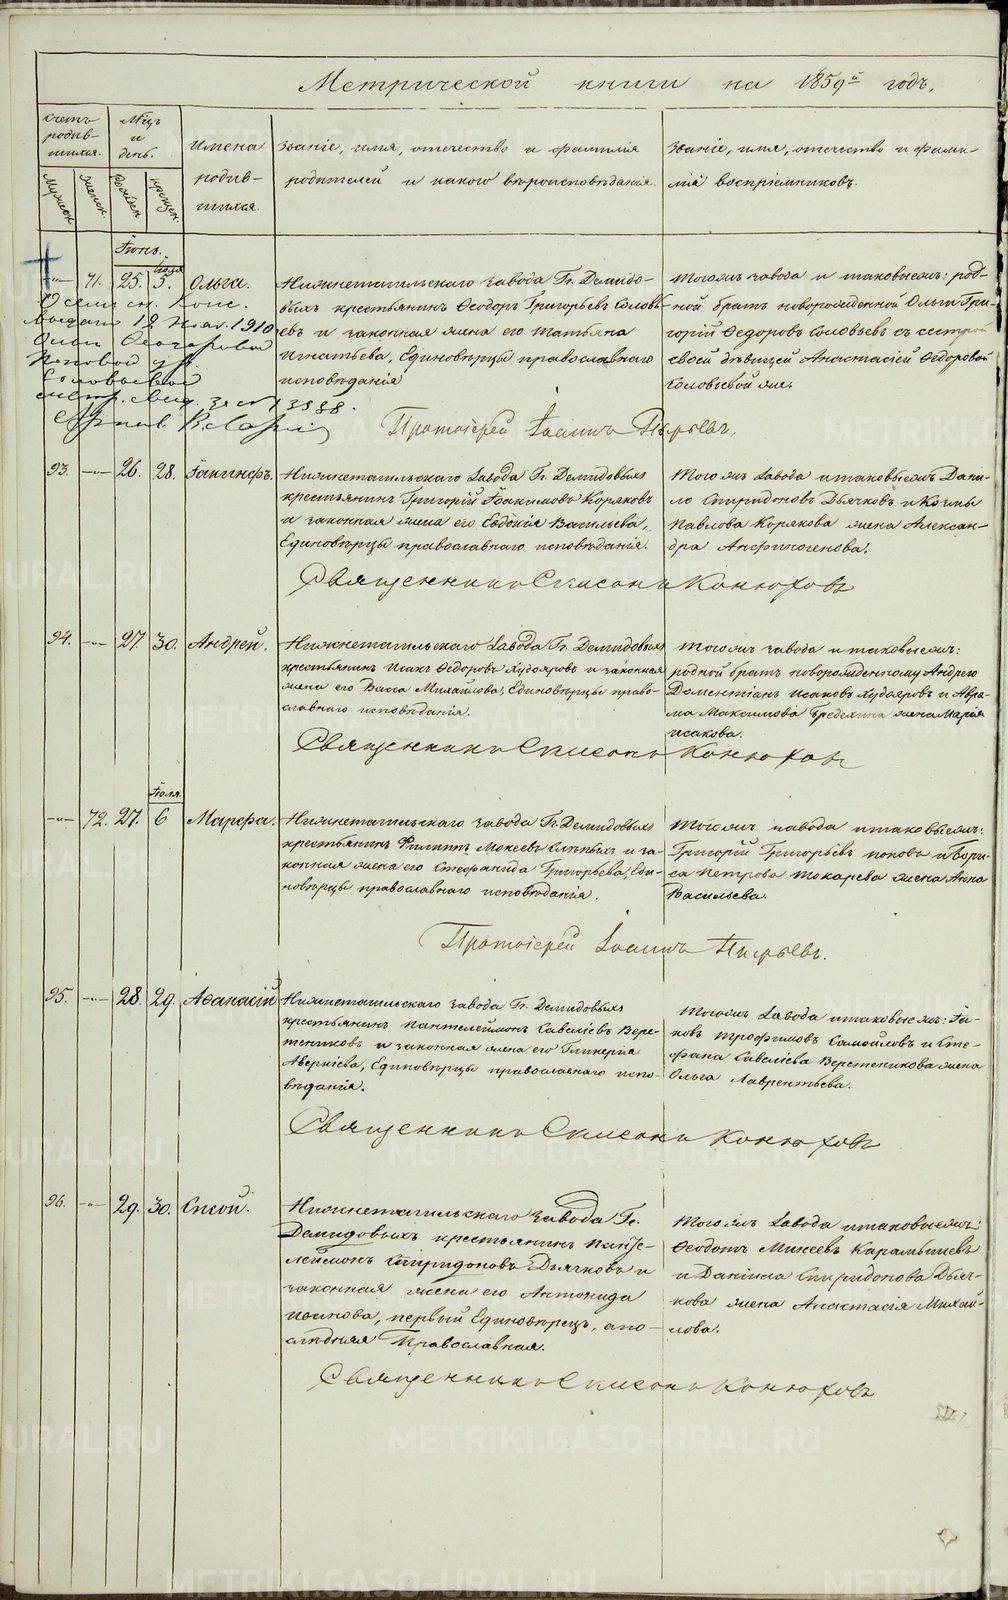 Метрической книги на 1859й годъ,
Счетъ родив-шихся.
Мцъ и день.
Имена родив-шихся.
Званіе, имя, отечество и фамилія
родителей и какого вѣроисповѣданія.
Званіе, имя, отечество и фами-
лія воспріемниковъ.
Мужск. Женск. Рожден. Крещен.
Іюнь.
Іюля
-"- 71. 25. 5. Ольга.
Нижнетагильскаго завода Гг. Демидо-
выхъ крестьянинъ Ѳеодоръ Григорьевъ Соловь-
евъ и законная жена его Татьяна
Игнатьева, Единовѣрцы православнаго
исповѣданія
Тогожъ завода и таковыежъ: род-
ной братъ новорожденной Ольги Гри-
горій Ѳедоровъ Соловьевъ съ сестрой
своей дѣвицей Анастасіей Ѳедоровой
Соловьевой же.
выдано 12 1910
Ольги Ѳеодоровой
Поповой ур.
Соловьевой
метр. свид. за № 3988.
Протоіерей Іоаннъ Пырьевъ.
93. -"- 26. 28. Іакинѳъ.
Нижнетагильскаго Завода Гг. Демидовыхъ
крестьянинъ Григорій Іоакимовъ Коряковъ
и законная жена его Евдокія Васильева,
Единовѣрцы православнаго исповѣданія.
Тогожъ Завода итаковыежъ Дани-
ло Спиридоновъ Дьячковъ и Козмы
Павлова Корякова жена Алексан-
дра Анфиногенова.
Священникъ Симеонъ Конюховъ
94. -"- 27. 30. Андрей.
Нижнетагильскаго Завода Гг. Демидовыхъ
крестьянинъ Исакъ Ѳедоровъ Худояровъ и законная
жена его Васса Михайлова, Единовѣрцы право-
славнаго исповѣданія.
Тогожъ завода итаковыежъ:
родной братъ новорожденному Андрею
Доментіанъ Исаковъ Худояровъ и Авра-
ма Максимова Бредихина жена Марія
Исакова.
Священникъ Симеонъ Конюховъ
Іюля
-"- 72. 27. 6 Марѳа.
Нижнетагильскаго завода Гг. Демидовыхъ
крестьянинъ Филиппъ Мокеевъ Слѣпыхъ и за-
конная жена его Стефанида Григорьева, Еди-
новѣрцы православнаго исповѣданія.
Тогожъ завода итаковыежъ:
Григорій Григорьевъ Поповъ и Бори-
са Петрова Токарева жена Анна
Васильева.
Протоіерей Іоаннъ Пырьевъ.
95. -"- 28. 29. Аѳанасій
Нижнетагильскаго завода Гг. Демидовыхъ
крестьянинъ Пантелеймонъ Савеліевъ Вере-
тенниковъ и законная жена его Гликерія
Аверкіева, Единовѣрцы православнаго испо-
вѣданія.
Тогожъ Завода итаковыежъ: Іа-
ковъ Трофимовъ Самойловъ и Сте-
фана Савеліева Веретеникова жена
Ольга Лаврентьева.
Священникъ Симеонъ Конюховъ
96. -"- 29. 30. Сисой.
Нижнетагильскаго завода Гг.
Демидовыхъ крестьянинъ Панте-
леймонъ Спиридоновъ Дьячковъ и
законная жена его Антонида
Иванова, первый Единовѣрецъ, а по-
слѣдняя Православная.
Тогожъ Завода итаковыежъ:
Ѳеодотъ Михеевъ Карамышевъ
и Даніила Спиридонова Дьяч-
кова жена Анастасія Михай-
лова.
Священникъ Симеонъ Конюховъ
METRIKI.GASO-URAL.RU